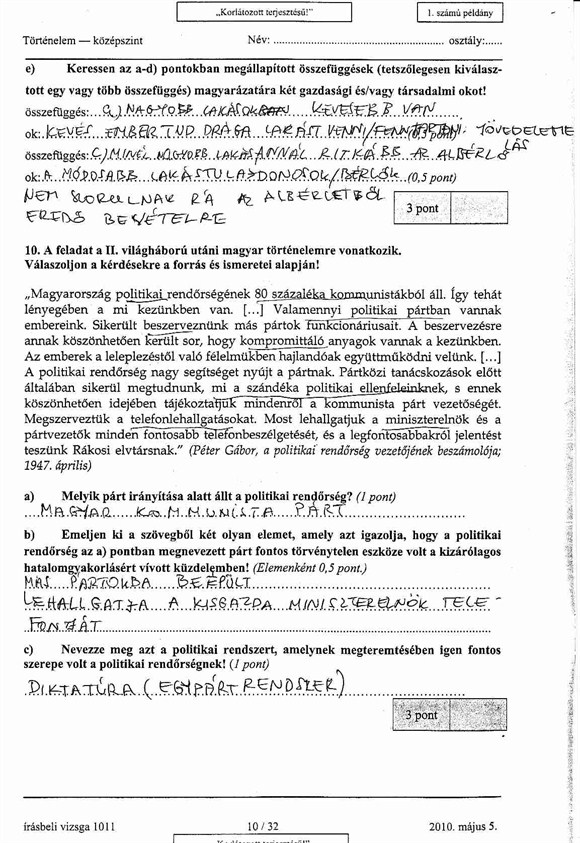 „Korlátozott terjesztésű!"
1. számú példány
Történelem — középszint Név: ................................................... osztály:......
e) Keressen az a-d) pontokban megállapított összefüggések (tetszőlegesen kiválasz-
tott egy vagy több összefüggés) magyarázatára két gazdasági és/vagy társadalmi okot!
összefüggés: NAGYOBB LAKÁSOKBAN KEVESEBB VAN
ok: KEVÉS EMBER TUD DRÁGA LAKÁST VENNI/FENNTARTANI: JÖVEDELEM (0,5 pont)
összefüggés: C) MINÉL NAGYOBB LAKÁS ANNÁL RITKÁBB AZ ALBÉRLŐ
ok: A MÓDOSABB LAKÁSTULAJDONOSOK/BÉRLŐK (0,5 pont)
NEM SZORULNAK RÁ AZ ALBÉRLETBŐL
EREDŐ BEVÉTELRE
3 pont
10. A feladat a II. világháború utáni magyar történelemre vonatkozik.
Válaszoljon a kérdésekre a forrás és ismeretei alapján!
„Magyarország politikai rendőrségének 80 százaléka kommunistákból áll. Így tehát
lényegében a mi kezünkben van. [...] Valamennyi politikai pártban vannak
embereink. Sikerült beszerveznünk más pártok funkcionáriusait. A beszervezésre
annak köszönhetően került sor, hogy kompromittáló anyagok vannak a kezünkben.
Az emberek a leleplezéstől való félelmükben hajlandóak együttműködni velünk. [...]
A politikai rendőrség nagy segítséget nyújt a pártnak. Pártközi tanácskozások előtt
általában sikerül megtudnunk, mi a szándéka politikai ellenfeleinknek, s ennek
köszönhetően idejében tájékoztatjuk mindenről a kommunista párt vezetőségét.
Megszerveztük a telefonlehallgatásokat. Most lehallgatjuk a miniszterelnök és a
pártvezetők minden fontosabb telefonbeszélgetését, és a legfontosabbakról jelentést
teszünk Rákosi elvtársnak." (Péter Gábor, a politikai rendőrség vezetőjének beszámolója;
1947. április)
a) Melyik párt irányítása alatt állt a politikai rendőrség? (1 pont)
MAGYAR KOMMUNISTA PÁRT
b) Emeljen ki a szövegből két olyan elemet, amely azt igazolja, hogy a politikai
rendőrség az a) pontban megnevezett párt fontos törvénytelen eszköze volt a kizárólagos
hatalomgyakorlásért vívott küzdelemben! (Elemenként 0,5 pont.)
MÁS PÁRTOKBA BEÉPÜLT
LEHALLGATJA A KISGAZDA MINISZTERELNÖK TELE-
FONJÁT
c) Nevezze meg azt a politikai rendszert, amelynek megteremtésében igen fontos
szerepe volt a politikai rendőrségnek! (1 pont)
DIKTATÚRA (EGYPÁRTRENDSZER)
3 pont
írásbeli vizsga 1011 10 / 32 2010. május 5.